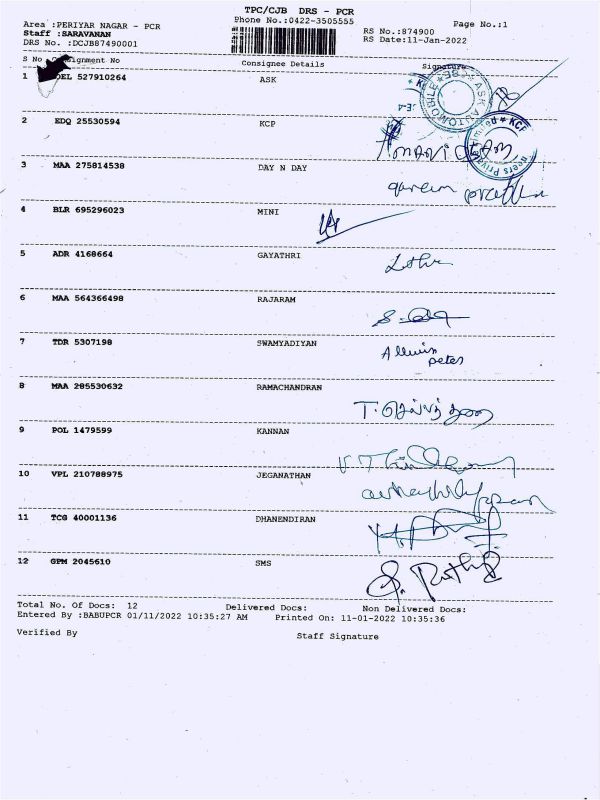 TPC/CJB DRS - PCR
Area :PERIYAR NAGAR - PCR Phone No.:0422-3505555 Page No.:1
Staff :SARAVANAN RS No.:874900
DRS No. :DCJB87490001 RS Date:11-Jan-2022
S No Consignment No Consignee Details Signature
1 DEL 527910264 ASK
ASK AUTOMOBILE
2 EDQ 25530594 KCP
KCP
3 MAA 275814538 DAY N DAY
4 BLR 695296023 MINI
5 ADR 4168664 GAYATHRI
6 MAA 564366498 RAJARAM
7 TDR 5307198 SWAMYADIYAN
Allwin
peter
8 MAA 285530632 RAMACHANDRAN
9 POL 1479599 KANNAN
10 VPL 210788975 JEGANATHAN
11 TCG 40001136 DHANENDIRAN
12 GPM 2045610 SMS
Total No. Of Docs: 12 Delivered Docs: Non Delivered Docs:
Entered By :BABUPCR 01/11/2022 10:35:27 AM Printed On: 11-01-2022 10:35:36
Verified By Staff Signature